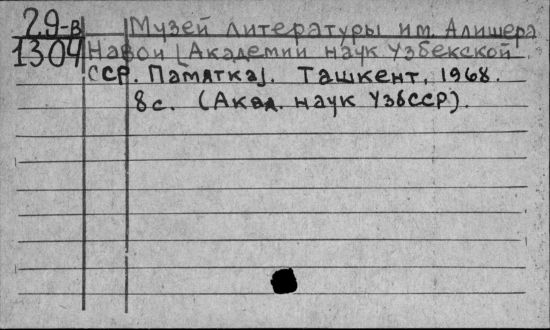 29-в Музей литературы им. Алишера
1304 Навои [Академии наук Узбекской
ССР. Памятка]. Ташкент, 1968.
8 с. (Акад. наук УзбССР).